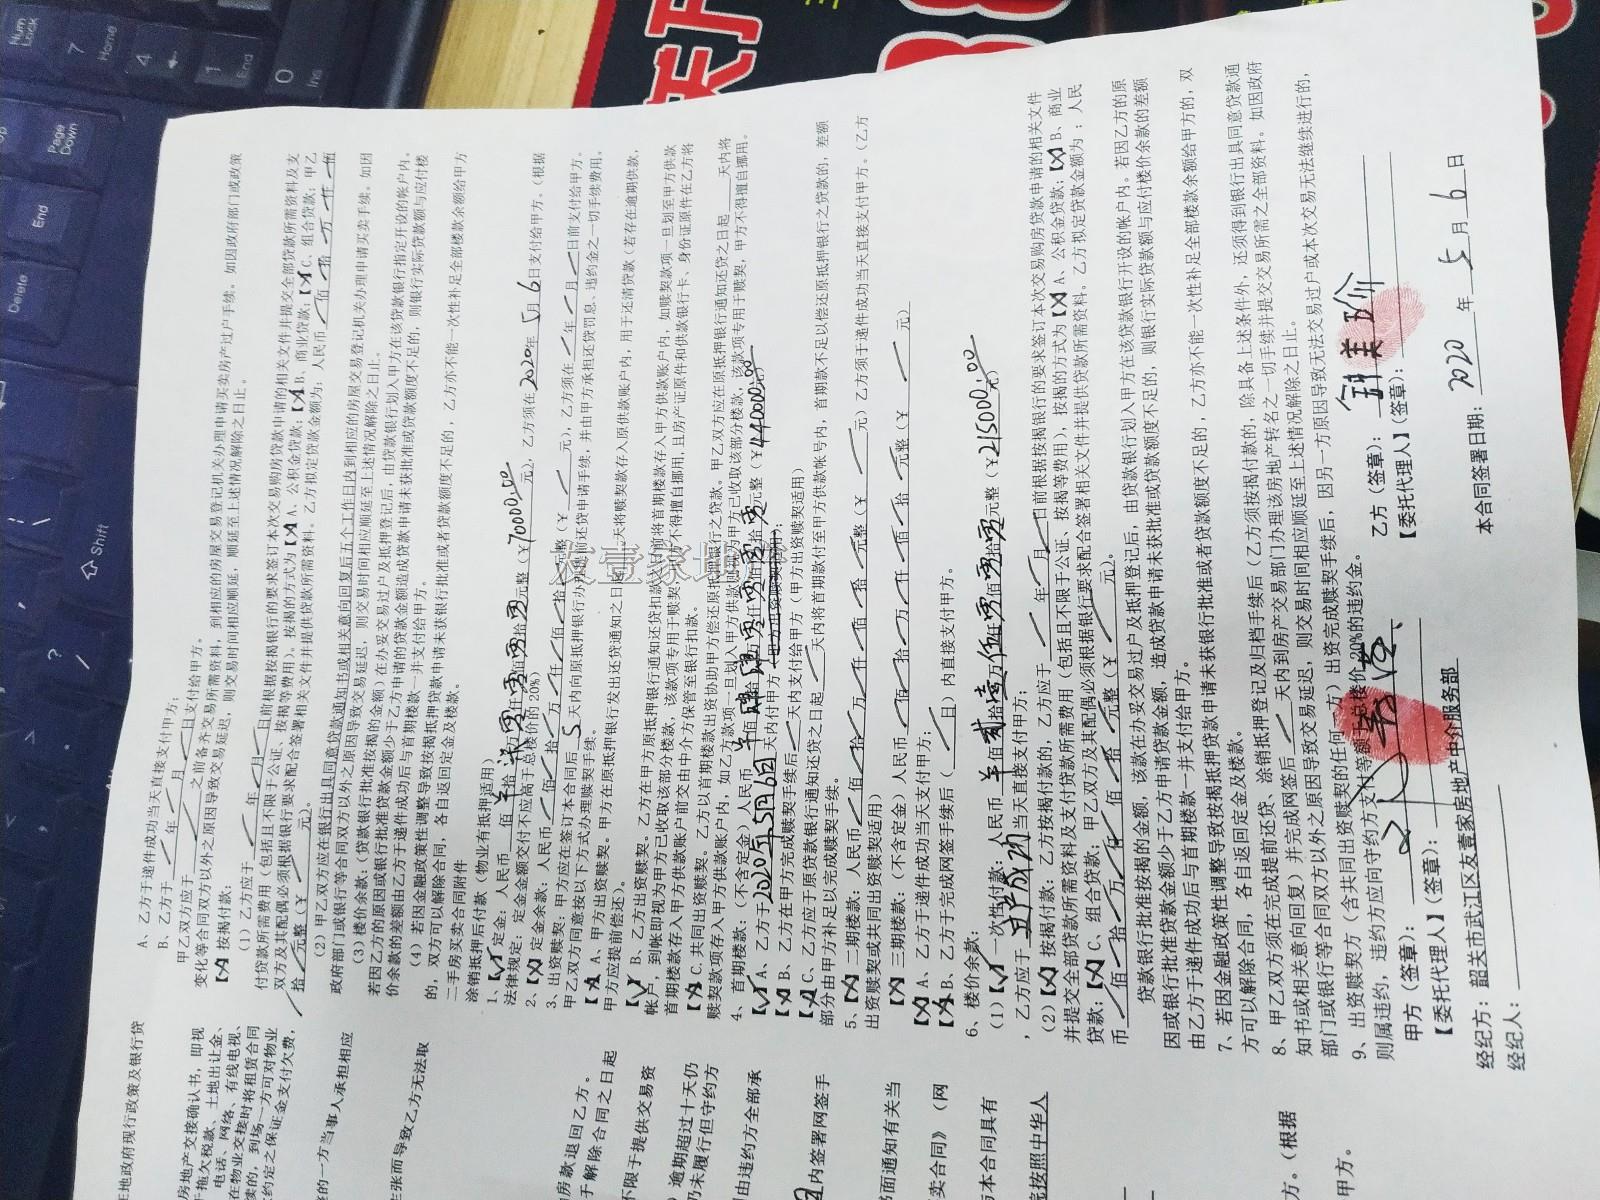 A、乙方于递件成功当天直接支付甲方；
B、乙方于 年 月 日支付给甲方。
甲乙双方应于 之前备齐交易所需资料，到相应的房屋交易登记机关办理申请买卖房产过户手续。如因政府部门或政策
变化等合同双方以外之原因导致交易延迟，则交易时间相应顺延，顺延至上述情况解除之日止。
按揭付款：
（1）乙方应于 年 月 日前根据按揭银行的要求签订本次交易购房贷款申请的相关文件并提交全部贷款所需资料及支
付贷款所需费用（包括且不限于公证、按揭等费用）。按揭的方式为【】A、公积金贷款；【】B、商业贷款；【】C、组合贷款；甲乙
双方及其配偶必须根据银行要求配合签署相关文件并提供贷款所需资料。乙方拟定贷款金额为：人民币 佰 拾 万 仟 佰
拾 元整（￥ 元）。
（2）甲乙双方应在银行出具同意贷款通知书或相关意向回复后五个工作日内到相应的房屋交易登记机关办理申请买卖手续。如因
政府部门或银行等合同双方以外之原因导致交易延迟，则交易时间相应顺延至上述情况解除之日止。
（3）楼价余款：（贷款银行批准按揭的金额）在办妥交易过户及抵押登记后，由贷款银行划入甲方在该贷款银行指定开设的帐户内。
若因乙方的原因或银行批准贷款金额少于乙方申请的贷款金额造成贷款申请未获批准或贷款额度不足的，则银行实际贷款额与应付楼
价余款的差额由乙方于递件成功后与首期楼款一并支付给甲方。
（4）若因金融政策性调整导致按揭抵押贷款申请未获银行批准或者贷款额度不足的，乙方亦不能一次性补足全部楼款余额给甲方
的，双方可以解除合同，各自返回定金及楼款。
二手房买卖合同附件
涂销抵押后付款（物业有抵押适用）
1、【✓】定金：人民币 佰 拾 柒万零仟零佰零拾零元整（￥70000.00元），乙方须在2020年5月6日支付给甲方。（根据
法律规定：定金金额交付不应高于总楼价的20%）
2、【】定金余款：人民币 佰 拾 万 仟 佰 拾 元整（￥ 元），乙方须在 年 月 日前支付给甲方。
3、出资赎契：甲方应在签订本合同后5天内向原抵押银行办理提前还贷申请手续，并由甲方承担还贷罚息、违约金之一切手续费用。
甲乙双方同意按以下方式办理赎契手续。
【】A、甲方出资赎契。甲方在原抵押银行发出还贷通知之日起 天将赎契款存入原供款账户内，用于还清贷款（若存在逾期供款，
甲方应提前偿还）。
【✓】B、乙方出资赎契。乙方在甲方原抵押银行通知还贷扣款之前将首期楼款存入甲方供款账户内，如赎契款项一旦划至甲方供款
帐户，到帐即视为甲方已收取该部分楼款，该款项专用于赎契，甲方不得擅自挪用，且房产证原件和供款银行卡、身份证原件在乙方将
首期楼款存入甲方供款账户前交由中介方保管至银行扣款。
【】C、共同出资赎契。乙方以首期楼款出资协助甲方偿还原抵押银行之贷款。甲乙双方应在原抵押银行通知还贷之日起 天内将
赎契款项存入甲方供款账户内，如乙方款项一旦划入甲方供款账户即视为甲方已收取该部分楼款，该款项专用于赎契，甲方不得擅自挪用。
4、首期楼款：（不含定金）人民币 佰肆拾肆万零仟零佰零拾零元整（￥440000.00元）
【✓】A、乙方于2020年5月6日天内付甲方（甲方出资赎契适用）；
【】B、乙方在甲方完成赎契手续后 天内支付给甲方（甲方出资赎契适用）
【】C、乙方应于原贷款银行通知还贷之日起 天内将首期款付至甲方供款帐号内，首期款不足以偿还原抵押银行之贷款的，差额
部分由甲方补足以完成赎契手续。
5、【】二期楼款：人民币 佰 拾 万 仟 佰 拾 元整（￥ 元）乙方须于递件成功当天直接支付甲方。（乙方
出资赎契或共同出资赎契适用）
【】三期楼款：（不含定金）人民币 佰 拾 万 仟 佰 拾 元整（￥ 元）
【】A、乙方于递件成功当天支付甲方；
【】B、乙方于完成网签手续后（ 日）内直接支付甲方。
6、楼价余款：
（1）【✓】一次性付款：人民币 佰贰拾壹万伍仟零佰零拾零元整（￥215000.00元）
，乙方应于过户成功当天直接支付甲方；
（2）【】按揭付款：乙方按揭付款的，乙方应于 年 月 日前根据按揭银行的要求签订本次交易购房贷款申请的相关文件
并提交全部贷款所需资料及支付贷款所需费用（包括且不限于公证、按揭等费用），按揭的方式为【】A、公积金贷款；【】B、商业
贷款；【】C、组合贷款；甲乙双方及其配偶必须根据银行要求配合签署相关文件并提供贷款所需资料。乙方拟定贷款金额为：人民
币 佰 拾 万 仟 佰 拾 元整（￥ 元）。
贷款银行批准按揭的金额，该款在办妥交易过户及抵押登记后，由贷款银行划入甲方在该贷款银行开设的帐户内。若因乙方的原
因或银行批准贷款金额少于乙方申请贷款金额，造成贷款申请未获批准或贷款额度不足的，则银行实际贷款额与应付楼价余款的差额
由乙方于递件成功后与首期楼款一并支付给甲方。
7、若因金融政策性调整导致按揭抵押贷款申请未获银行批准或者贷款额度不足的，乙方亦不能一次性补足全部楼款余额给甲方的，双
方可以解除合同，各自返回定金及楼款。
8、甲乙双方须在完成提前还贷、涂销抵押登记及归档手续后（乙方须按揭付款的，除具备上述条件外，还须得到银行出具同意贷款通
知书或相关意向回复）并完成网签后 天内到房产交易部门办理该房地产转名之一切手续并提交交易所需之全部资料。如因政府
部门或银行等合同双方以外之原因导致交易延迟，则交易时间相应顺延至上述情况解除之日止。
9、出资赎契方（含共同出资赎契的任何一方）出资完成赎契手续后，因另一方原因导致无法交易过户或本次交易无法继续进行的，
则属违约，违约方应向守约方支付等额于总楼价20%的违约金。
甲方（签章）：
乙方（签章）：
【委托代理人】（签章）：
【委托代理人】（签章）：
经纪方：韶关市武江区友壹家房地产中介服务部
经纪人：
本合同签署日期：2020年5月6日
友壹家地产
地政府现行政策及银行贷
房地产交接确认书，即视
于拖欠税款、土地出让金、
电话、网络、有线电视、
在物业交接时将租赁合同
续的，到场一方可对物业
约定之保证金支付欠费，
的一方当事人承担相应
主张而导致乙方无法取
房款退回乙方。
于解除合同之日起
不限于提供交易资
逾期超过十天仍
仍未履行但守约方
由违约方全部承
内签署网签手
面通知有关当
卖合同》（网
与本合同具有
选按照中华人
方。（根据
甲方。
Num Lock
7 Home
4
1 End
0 Ins
Page Down
End
Delete
Shift